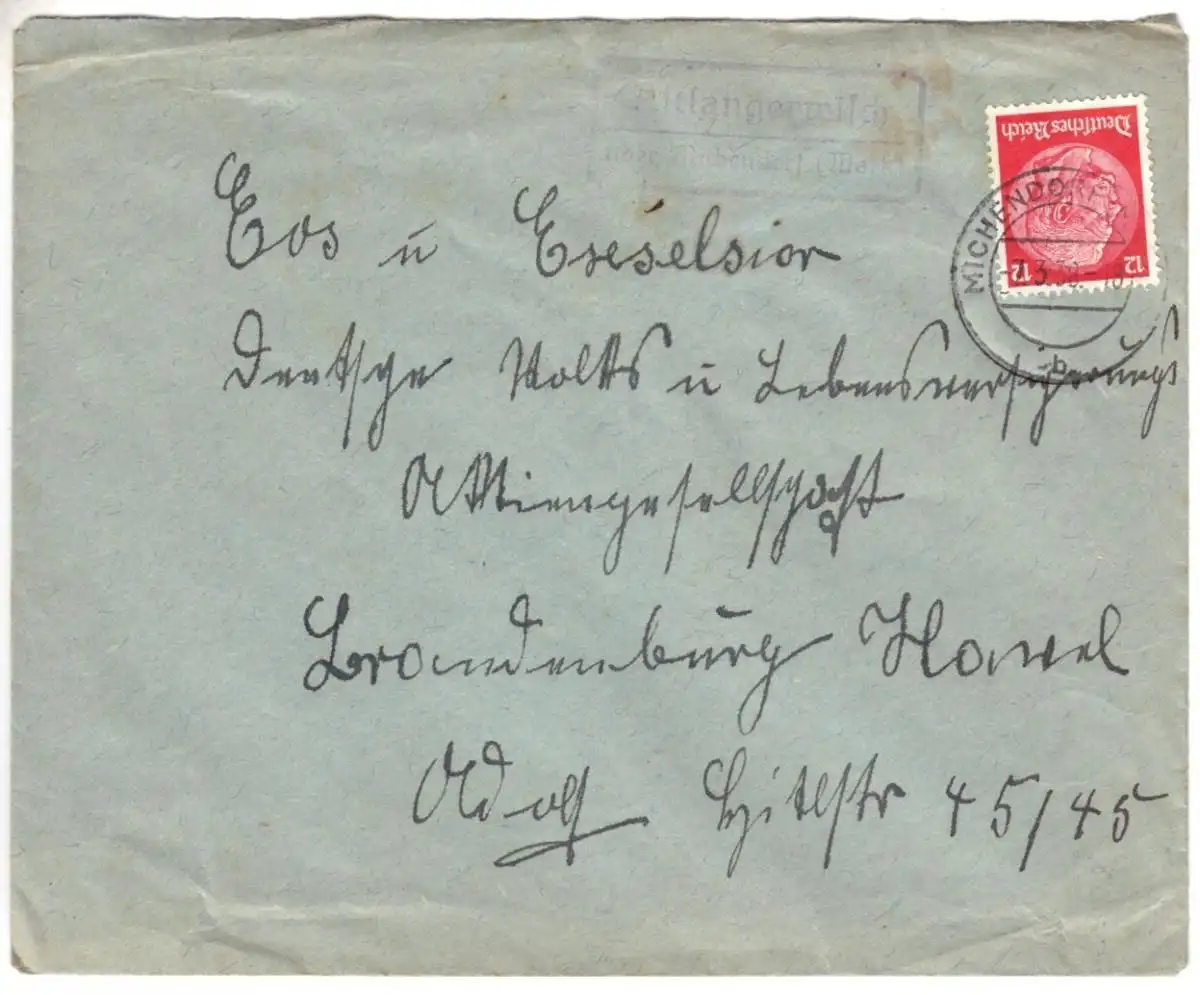 Altlangerwisch
über Michendorf (Mark)
Deutsches Reich
12 12
MICHENDORF
Eos u Exeselsior
Deutsche Volks u Lebensversicherungs
Aktiengesellschaft
Brandenburg Havel
Adolf Hitlstr 45/45